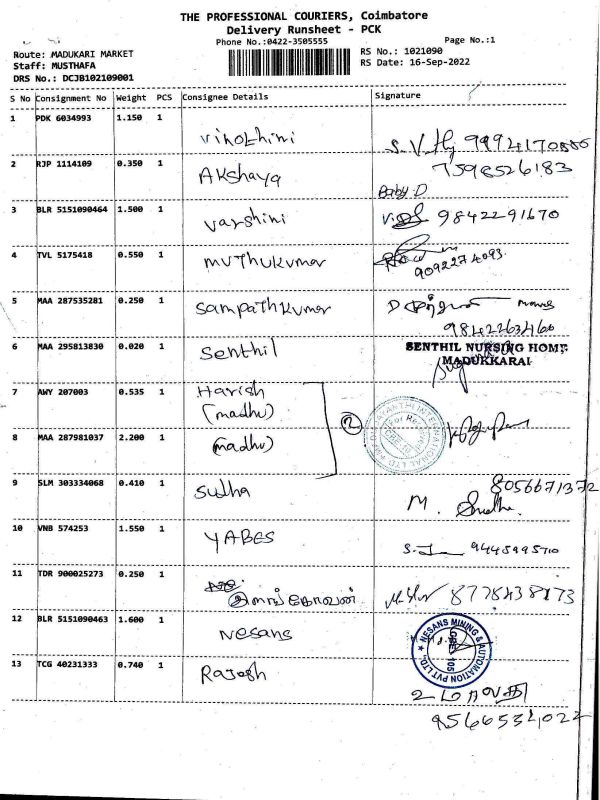 THE PROFESSIONAL COURIERS, Coimbatore
Delivery Runsheet - PCK
Phone No.:0422-3505555 Page No.:1
Route: MADUKARI MARKET RS No.: 1021090
Staff: MUSTHAFA RS Date: 16-Sep-2022
DRS No.: DCJB102109001
S No Consignment No Weight PCS Consignee Details Signature
1 PDK 6034993 1.150 1
Vinothini S. 9994170556
2 RJP 1114109 0.350 1 7598526183
Akshaya
Baby.D
3 BLR 5151090464 1.500 1
varshini 9842291670
4 TVL 5175418 0.550 1
muthukumar
9092274093.
5 MAA 287535281 0.250 1
Sampathkumar D
9842263466
6 MAA 295813830 0.020 1 SENTHIL NURSING HOME
Senthil MADUKKARAI
7 AWY 207003 0.535 1 Harish
(madhu) 2
8 MAA 287981037 2.200 1 (madhu)
9 SLM 303334068 0.410 1 8056671372
Sudha M. Sudha
10 VNB 574253 1.550 1
YABES 9445995710
11 TDR 900025273 0.250 1
இளங்கோவன் 8778438173
12 BLR 5151090463 1.600 1
Nesans NESANS MINING & AUTOMATION PVT LTD.
CBE 105
13 TCG 40231333 0.740 1
Rajesh
உமாவதி
9566532,022